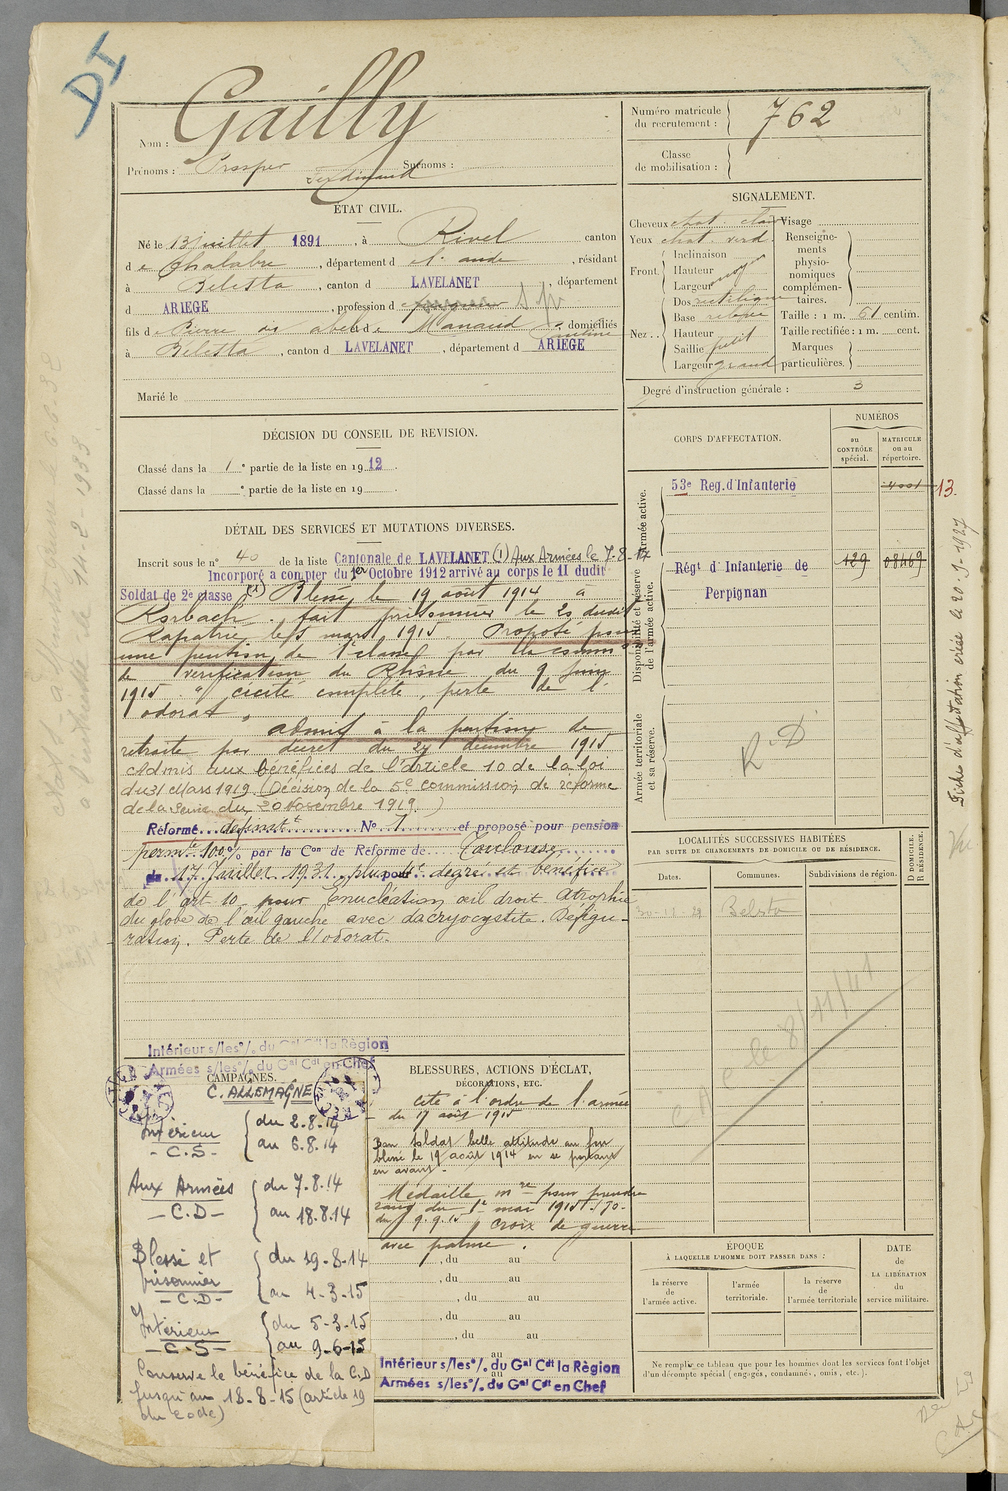 DI
Nom : Gailly
Prénoms : Prosper Ferdinand Surnoms :
ÉTAT CIVIL.
Né le 13 juillet 1891, à Rivel canton
de Chalabre, département de l'aude, résidant
à Bélesta, canton d LAVELANET, département
d ARIEGE, profession d
fils de Pierre et de Manaud domiciliés
à Bélesta, canton d LAVELANET, département d ARIEGE
Marié le
DÉCISION DU CONSEIL DE REVISION.
Classé dans la 1e partie de la liste en 1912.
Classé dans la e partie de la liste en 19
DÉTAIL DES SERVICES ET MUTATIONS DIVERSES.
Inscrit sous le n° 40 de la liste Cantonale de LAVELANET (1) Aux Armées le 7-8-14
Incorporé a compter du 1er Octobre 1912 arrivé au corps le 11 dudit
Soldat de 2e classe (1) Blessé le 19 août 1914 à
Rorbach. fait prisonnier le 20 dudit
Rapatrié le 5 mars 1915. Proposé pour
une pension de 1e classe par la comm
de vérification du Rhône du 9 juin
1915 " cécité complète, perte de l'
odorat "
admis à la pension de
retraite par décret du 24 décembre 1915
Admis aux bénéfices de l'article 10 de la loi
du 31 Mars 1919 (Décision de la 5e commission de réforme
de la Seine du 20 Novembre 1919)
Réformé définit t N° 1 et proposé pour pension
perm te 100% par la Con de Réforme de Toulouse
du 17 Juillet 1931 plus degré et bénéfice
de l'art 10 pour Enucléation œil droit Atrophie
du globe de l'œil gauche avec dacryocystite. Défigu-
ration. Perte de l'odorat.
Intérieur s/les°/. du Gal Cdt la Région
Armées s/les°/. du Gal Cdt en Chef
CAMPAGNES.
C. ALLEMAGNE
Intérieur
- C.S -
du 2.8.14
au 6.8.14
Aux Armées
- C.D -
du 7.8.14
au 18.8.14
Blessé et
prisonnier
- C.D -
du 19-8-14
au 4-3-15
Intérieur
- C.S -
du 5-3-15
au 9-6-15
Conserve le bénéfice de la C.D
jusqu'au 18-8-15 (article 19
du code)
BLESSURES, ACTIONS D'ÉCLAT,
DÉCORATIONS, ETC.
Cité à l'ordre de l'armée
du 17 août 1915
Bon Soldat belle attitude au feu
blessé le 19 août 1914 en se portant
en avant.
Médaille m re pour prendre
rang du 1e mai 1915
du 9.9.15 Croix de guerre
avec palme.
, du au
, du au
, du au
, du au
, du au
au
Intérieur s/les°/. du Gal Cdt la Région
au
Armées s/les°/. du Gal Cdt en Chef
Numéro matricule
du recrutement : 762
Classe
de mobilisation :
SIGNALEMENT.
Cheveux chat. clair
Yeux chat. verd.
Front.
Inclinaison
Hauteur moyen
Largeur
Nez . .
Dos rectiligne
Base relevée
Hauteur
Saillie petit
Largeur grand
Visage
Renseigne-
ments
physio-
nomiques
complémen-
taires.
Taille : 1 m. 61 centim.
Taille rectifiée : 1 m. cent.
Marques
particulières.
Degré d'instruction générale : 3
CORPS D'AFFECTATION.
NUMÉROS
au
CONTRÔLE
spécial.
MATRICULE
ou au
répertoire.
Armée active.
53e Reg. d'Infanterie
4001 13.
Disponibilité et réserve
de l'armée active.
Régt d'Infanterie de
Perpignan
129
08469
Armée territoriale
et sa réserve.
R D
LOCALITÉS SUCCESSIVES HABITÉES
PAR SUITE DE CHANGEMENTS DE DOMICILE OU DE RÉSIDENCE.
Dates.
Communes.
Subdivisions de région.
D DOMICILE.
R RÉSIDENCE.
Belesta
le 8/11/41
ÉPOQUE
À LAQUELLE L'HOMME DOIT PASSER DANS :
la réserve
de
l'armée active.
l'armée
territoriale.
la réserve
de
l'armée territoriale
DATE
de
LA LIBÉRATION
du
service militaire.
Ne remplir ce tableau que pour les hommes dont les services font l'objet
d'un décompte spécial (engagés, condamnés, omis, etc.).
Fiches d'affectation créée le 20-9-1927